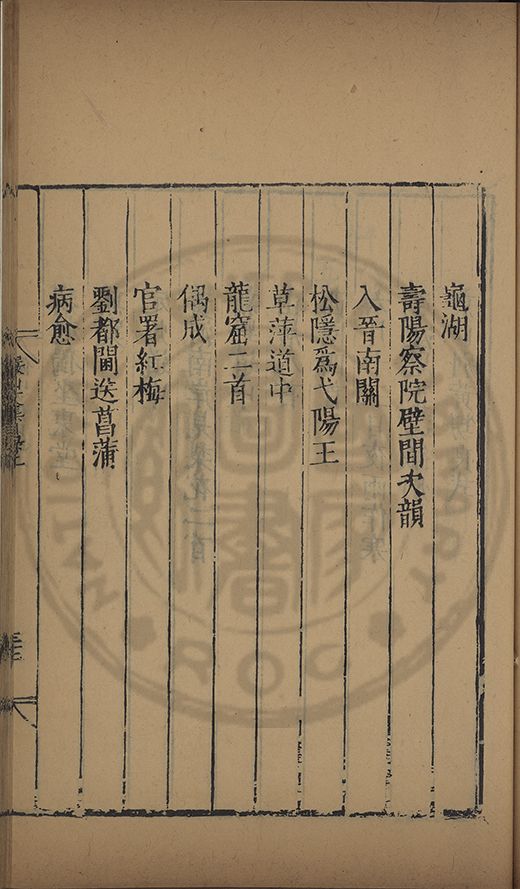 龜湖
壽陽察院壁間次韻
入晉南關
松隱爲弋陽王
草萍道中
龍窟二首
偶成
官署紅梅
劉都閫送菖蒲
病愈